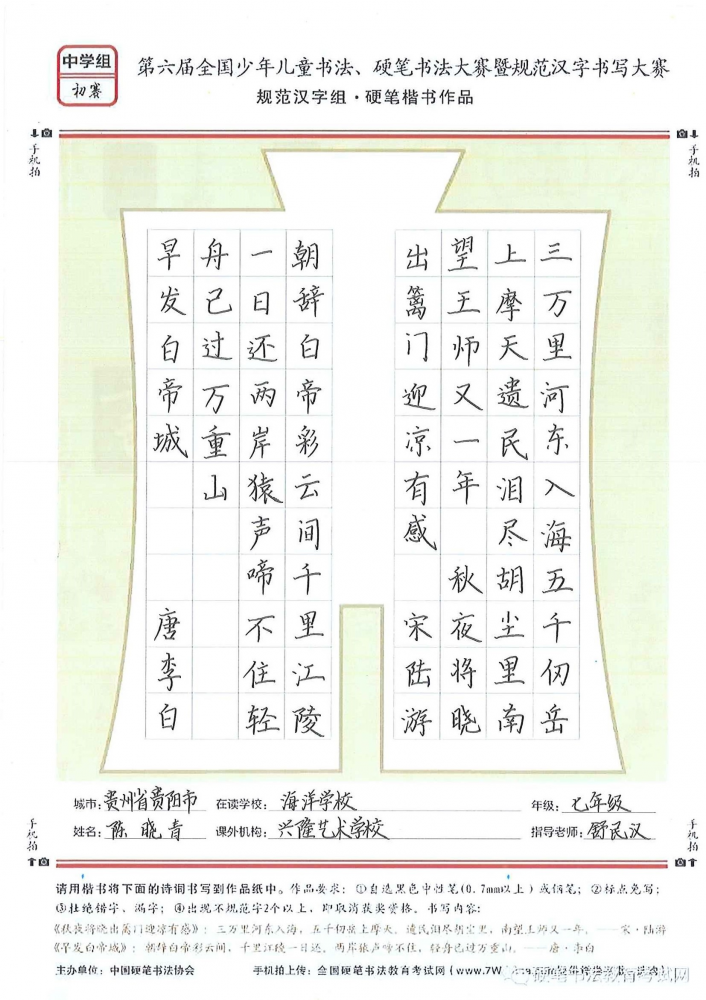 中学组
初赛
第六届全国少年儿童书法、硬笔书法大赛暨规范汉字书写大赛
规范汉字组·硬笔楷书作品
手机拍
手机拍
三万里河东入海五千仞岳
上摩天遗民泪尽胡尘里南
望王师又一年 秋夜将晓
出篱门迎凉有感 宋陆游
朝辞白帝彩云间千里江陵
一日还两岸猿声啼不住轻
舟已过万重山
早发白帝城 唐李白
城市:贵州省贵阳市 在读学校:海洋学校 年级:七年级
姓名:陈晓青 课外机构:兴隆艺术学校 指导老师:舒民汉
手机拍
手机拍
请用楷书将下面的诗词书写到作品纸中。作品要求：①自选黑色中性笔(0.7mm以上)或钢笔；②标点免写；
③杜绝错字、漏字；④出现不规范字2个以上，即取消获奖资格。书写内容：
《秋夜将晓出篱门迎凉有感》：三万里河东入海，五千仞岳上摩天。遗民泪尽胡尘里，南望王师又一年。——宋·陆游
《早发白帝城》：朝辞白帝彩云间，千里江陵一日还。两岸猿声啼不住，轻舟已过万重山。——唐·李白
主办单位：中国硬笔书法协会 手机拍上传：全国硬笔书法教育考试网(www.7W
硬笔书法教育考试网